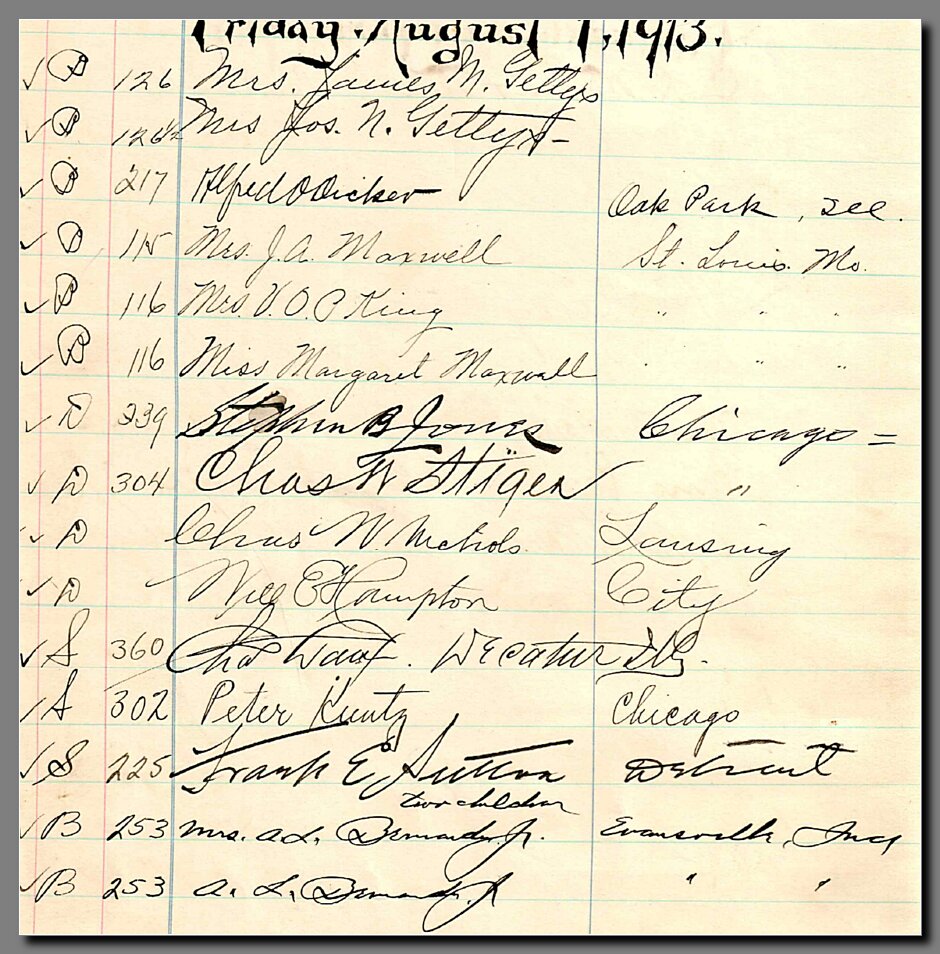 Friday. August 1, 1913.
✓ B 126 Mrs. James N. Gettys
✓ B 126½ Mrs Jos. N. Gettys -
✓ B 217 Alfred O Dicker Oak Park, Ill.
✓ D 115 Mrs. J. A. Maxwell St. Louis. Mo.
✓ B 116 Mrs. V. O. C King " " "
✓ B 116 Miss Margaret Maxwell " " "
✓ D 239 Stephen B Jones Chicago =
✓ D 304 Chas W Stiger "
✓ D Chas W. Nichols. Lansing
✓ D Will E Hampton City
✓ S 360 Chas . Decatur Ills.
✓ S 302 Peter Kuntz Chicago
✓ S 225 Frank E. Sutton Detroit
two children
✓ B 253 Mrs. A. L. Jr. Evansville, Ind
✓ B 253 A. L. Jr " "